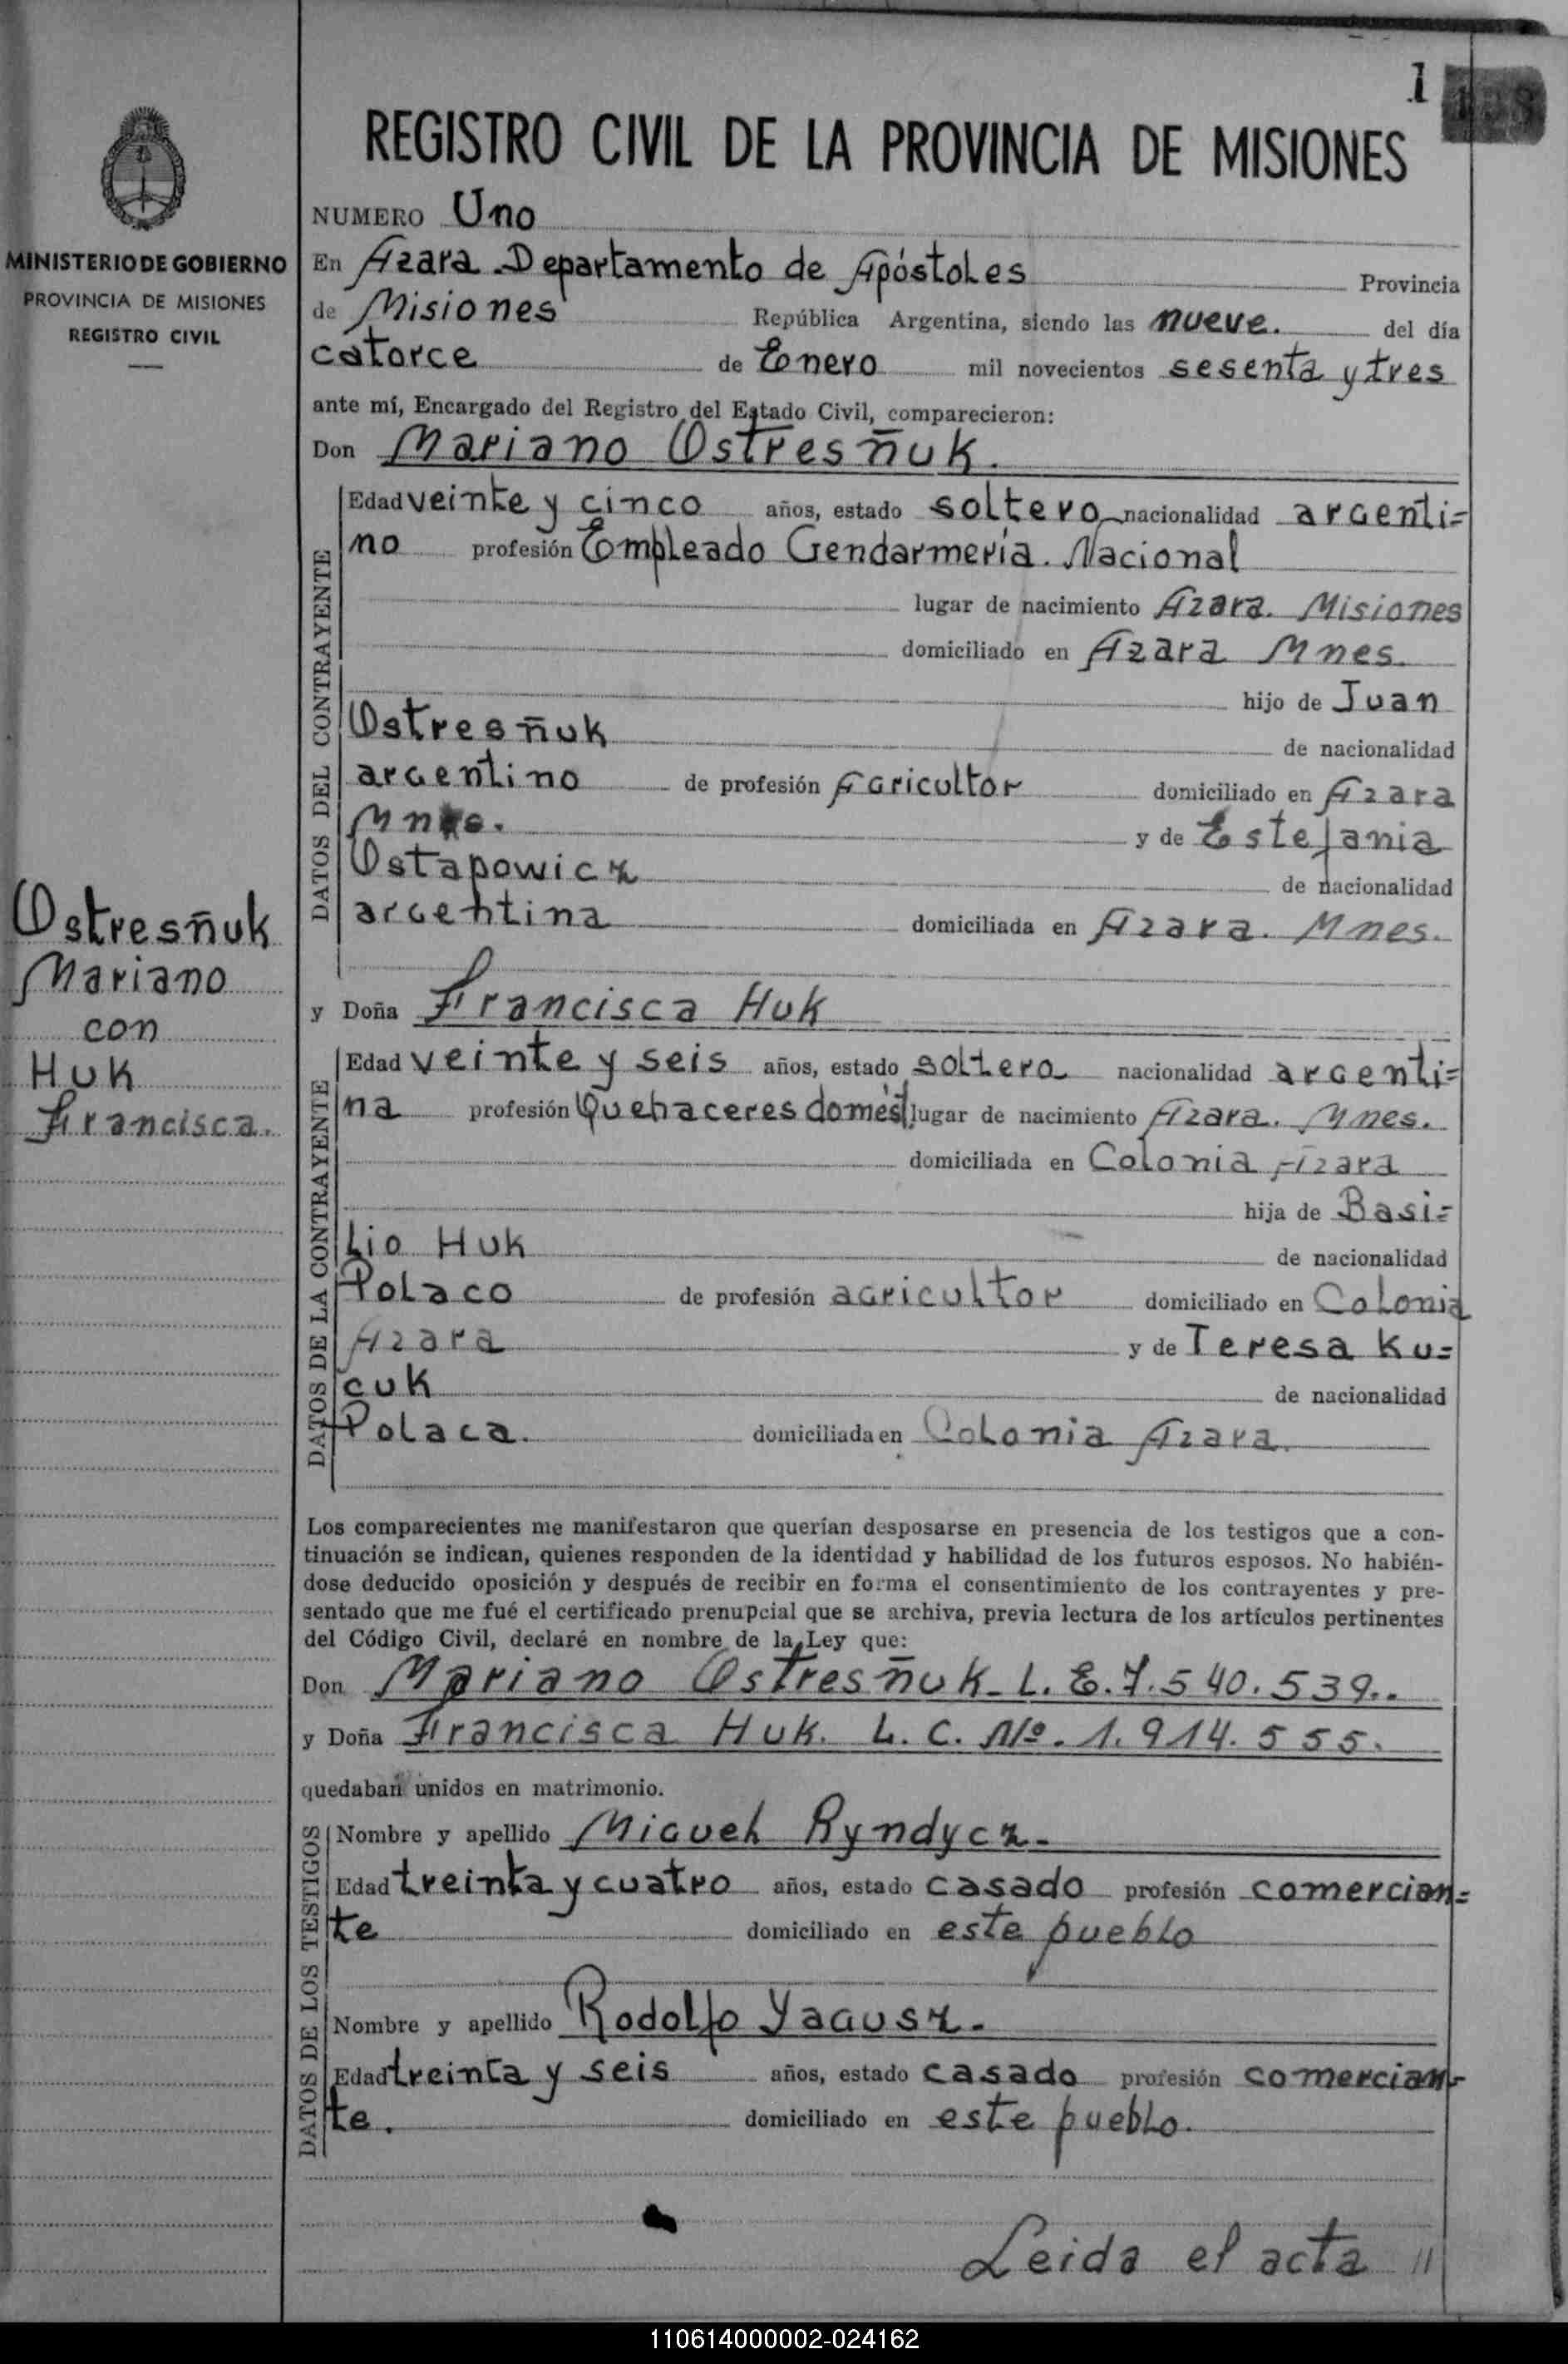 1
REGISTRO CIVIL DE LA PROVINCIA DE MISIONES
MINISTERIO DE GOBIERNO
PROVINCIA DE MISIONES
REGISTRO CIVIL
NUMERO Uno
En Azara Departamento de Apóstoles Provincia
de Misiones República Argentina, siendo las nueve. del día
catorce de Enero mil novecientos sesenta y tres
ante mí, Encargado del Registro del Estado Civil, comparecieron:
Don Mariano Ostresñuk.
DATOS DEL CONTRAYENTE
Edad veinte y cinco años, estado soltero nacionalidad argenti=
no profesión Empleado Gendarmería Nacional
lugar de nacimiento Azara. Misiones
domiciliado en Azara Mnes.
hijo de Juan
Ostresñuk de nacionalidad
argentino de profesión Agricultor domiciliado en Azara
Mnes. y de Estefania
Ostapowicz de nacionalidad
argentina domiciliada en Azara. Mnes.
Ostresñuk
Mariano
con
Huk
Francisca.
y Doña Francisca Huk
DATOS DE LA CONTRAYENTE
Edad veinte y seis años, estado soltera nacionalidad argenti=
na profesión Quehaceres domést. lugar de nacimiento Azara. Mnes.
domiciliada en Colonia Azara
hija de Basi=
lio Huk de nacionalidad
Polaco de profesión agricultor domiciliado en Colonia
Azara y de Teresa Ku=
cuk de nacionalidad
Polaca. domiciliada en Colonia Azara.
Los comparecientes me manifestaron que querían desposarse en presencia de los testigos que a con-
tinuación se indican, quienes responden de la identidad y habilidad de los futuros esposos. No habién-
dose deducido oposición y después de recibir en forma el consentimiento de los contrayentes y pre-
sentado que me fué el certificado prenupcial que se archiva, previa lectura de los artículos pertinentes
del Código Civil, declaré en nombre de la Ley que:
Don Mariano Ostresñuk. L. E. 7.540.539..
y Doña Francisca Huk. L. C. Nº. 1.914.555.
quedaban unidos en matrimonio.
DATOS DE LOS TESTIGOS
Nombre y apellido Miguel Ryndycz.
Edad treinta y cuatro años, estado casado profesión comercian=
te domiciliado en este pueblo
Nombre y apellido Rodolfo Yagusz.
Edad treinta y seis años, estado casado profesión comercian-
te. domiciliado en este pueblo.
Leida el acta //
110614000002-024162